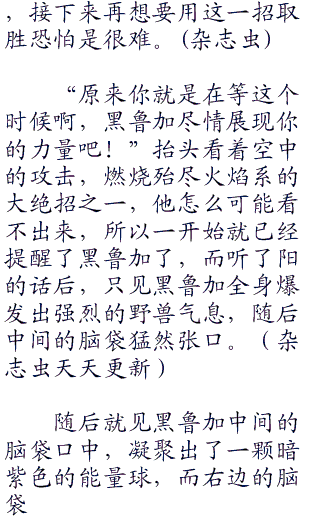 ，接下来再想要用这一招取
胜恐怕是很难。(杂志虫)
“原来你就是在等这个
时候啊，黑鲁加尽情展现你
的力量吧！”抬头看着空中
的攻击，燃烧殆尽火焰系的
大绝招之一，他怎么可能看
不出来，所以一开始就已经
提醒了黑鲁加了，而听了阳
的话后，只见黑鲁加全身爆
发出强烈的野兽气息，随后
中间的脑袋猛然张口。（杂
志虫天天更新）
随后就见黑鲁加中间的
脑袋口中，凝聚出了一颗暗
紫色的能量球，而右边的脑
袋